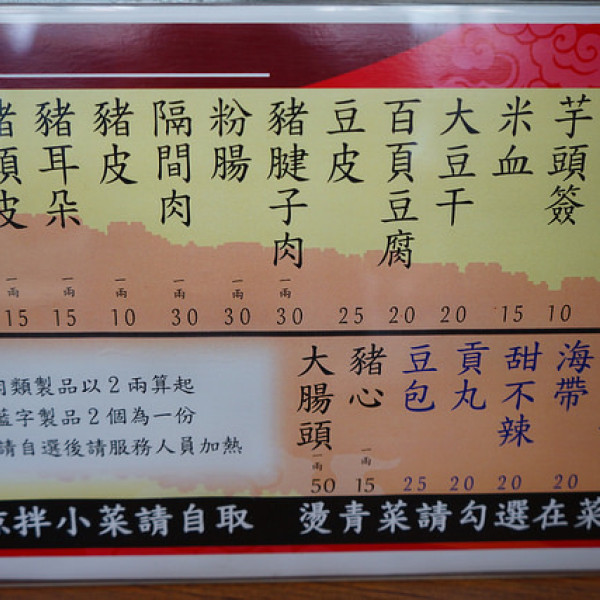 芋頭簽 10
米血 15
大豆干 20
百頁豆腐 20
豆皮 25
豬腱子肉 一兩 30
粉腸 一兩 30
隔間肉 一兩 30
豬皮 一兩 10
豬耳朵 一兩 15
豬頭皮 一兩 15
海帶 20
甜不辣 20
貢丸 20
豆包 25
豬心 一兩 15
大腸頭 一兩 50
肉類製品以2兩算起
藍字製品2個為一份
請自選後請服務人員加熱
涼拌小菜請自取 燙青菜請勾選在菜